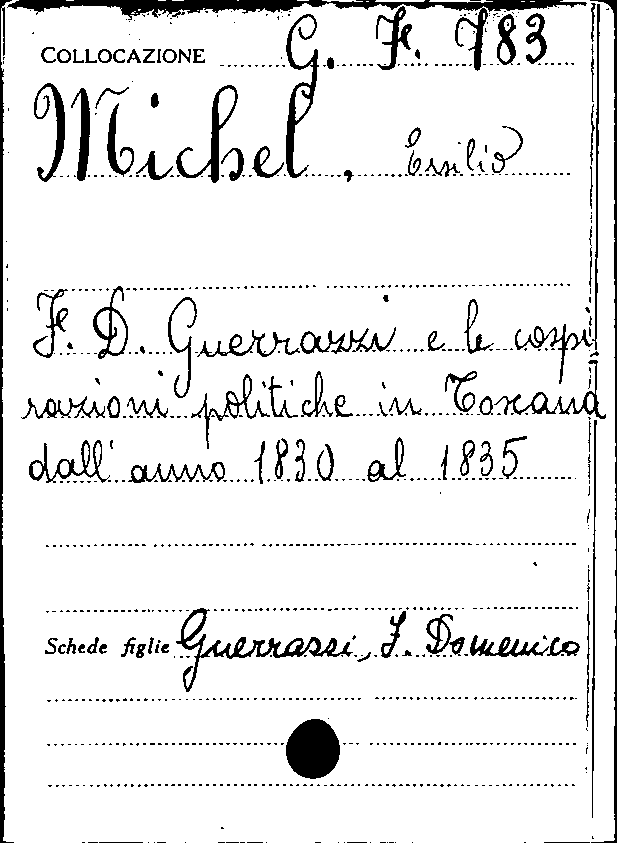 COLLOCAZIONE G. F. 783
Michel, Ersilio
F. D. Guerrazzi e le cospi=
razioni politiche in Toscana
dall'anno 1830 al 1835
Schede figlie Guerrazzi, F. Domenico